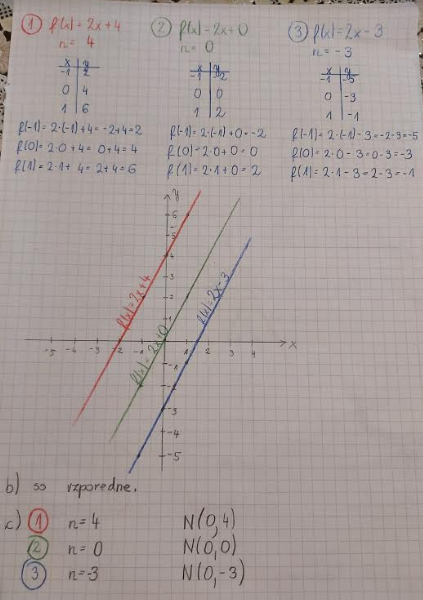 1 f(x) = 2x+4
n = 4
x y
-1 2
0 4
1 6
f(-1) = 2·(-1)+4 = -2+4 = 2
f(0) = 2·0+4 = 0+4 = 4
f(1) = 2·1+4 = 2+4 = 6
2 f(x) = 2x+0
n = 0
x y
-1 -2
0 0
1 2
f(-1) = 2·(-1)+0 = -2
f(0) = 2·0+0 = 0
f(1) = 2·1+0 = 2
3 f(x) = 2x-3
n = -3
x y
-1 -5
0 -3
1 -1
f(-1) = 2·(-1)-3 = -2-3 = -5
f(0) = 2·0-3 = 0-3 = -3
f(1) = 2·1-3 = 2-3 = -1
y
6
5
4
f(x) = 2x+4
f(x) = 2x+0
f(x) = 2x-3
1
-5 -4 -3 -2 -1 0 1 2 3 4 x
-1
-3
-4
-5
b) so vzporedne.
c) 1 n = 4 N(0,4)
2 n = 0 N(0,0)
3 n = -3 N(0,-3)